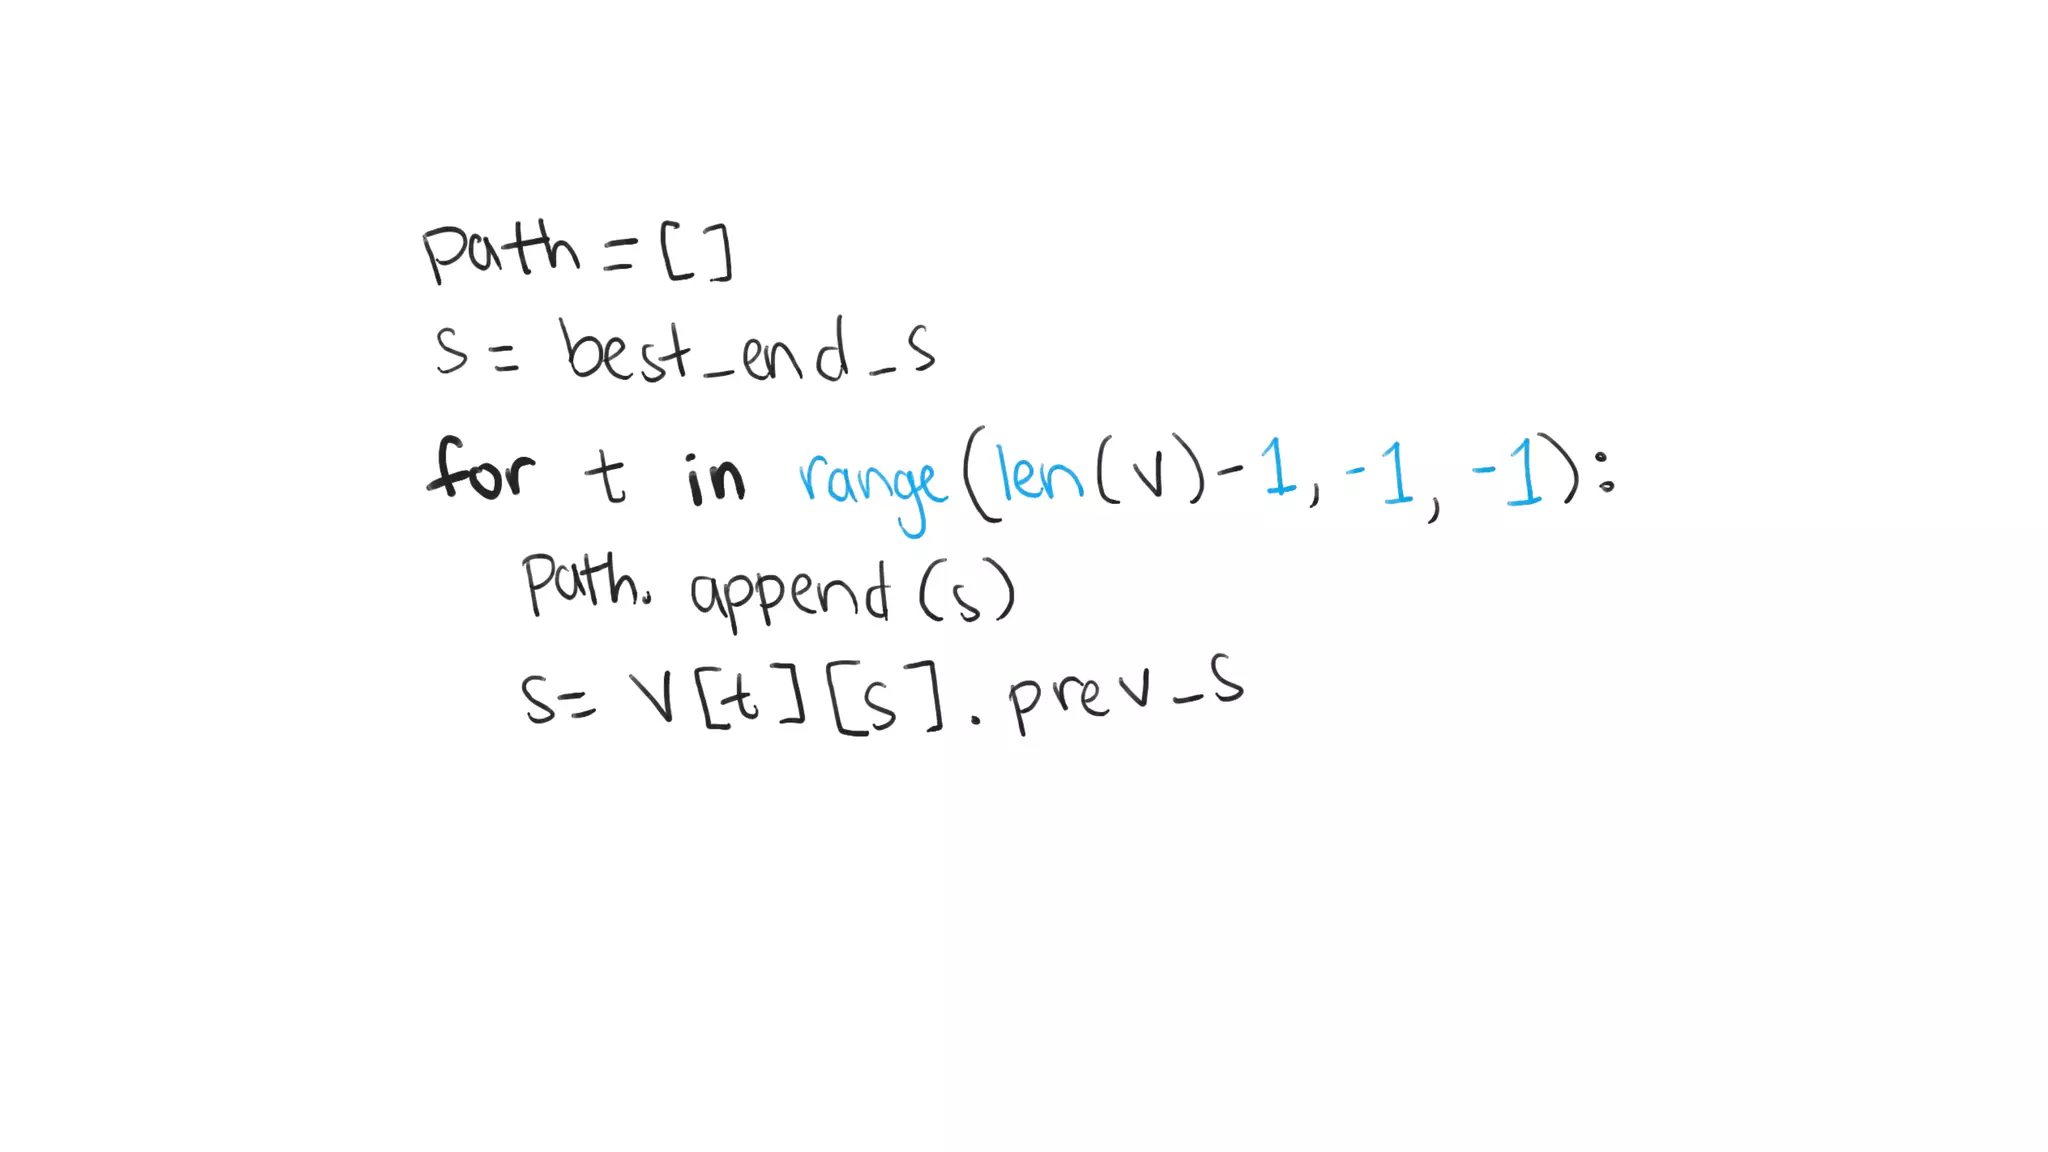 path = []
s = best_end_s
for t in range(len(v)-1, -1, -1):
path. append(s)
s = v[t][s].prev_s